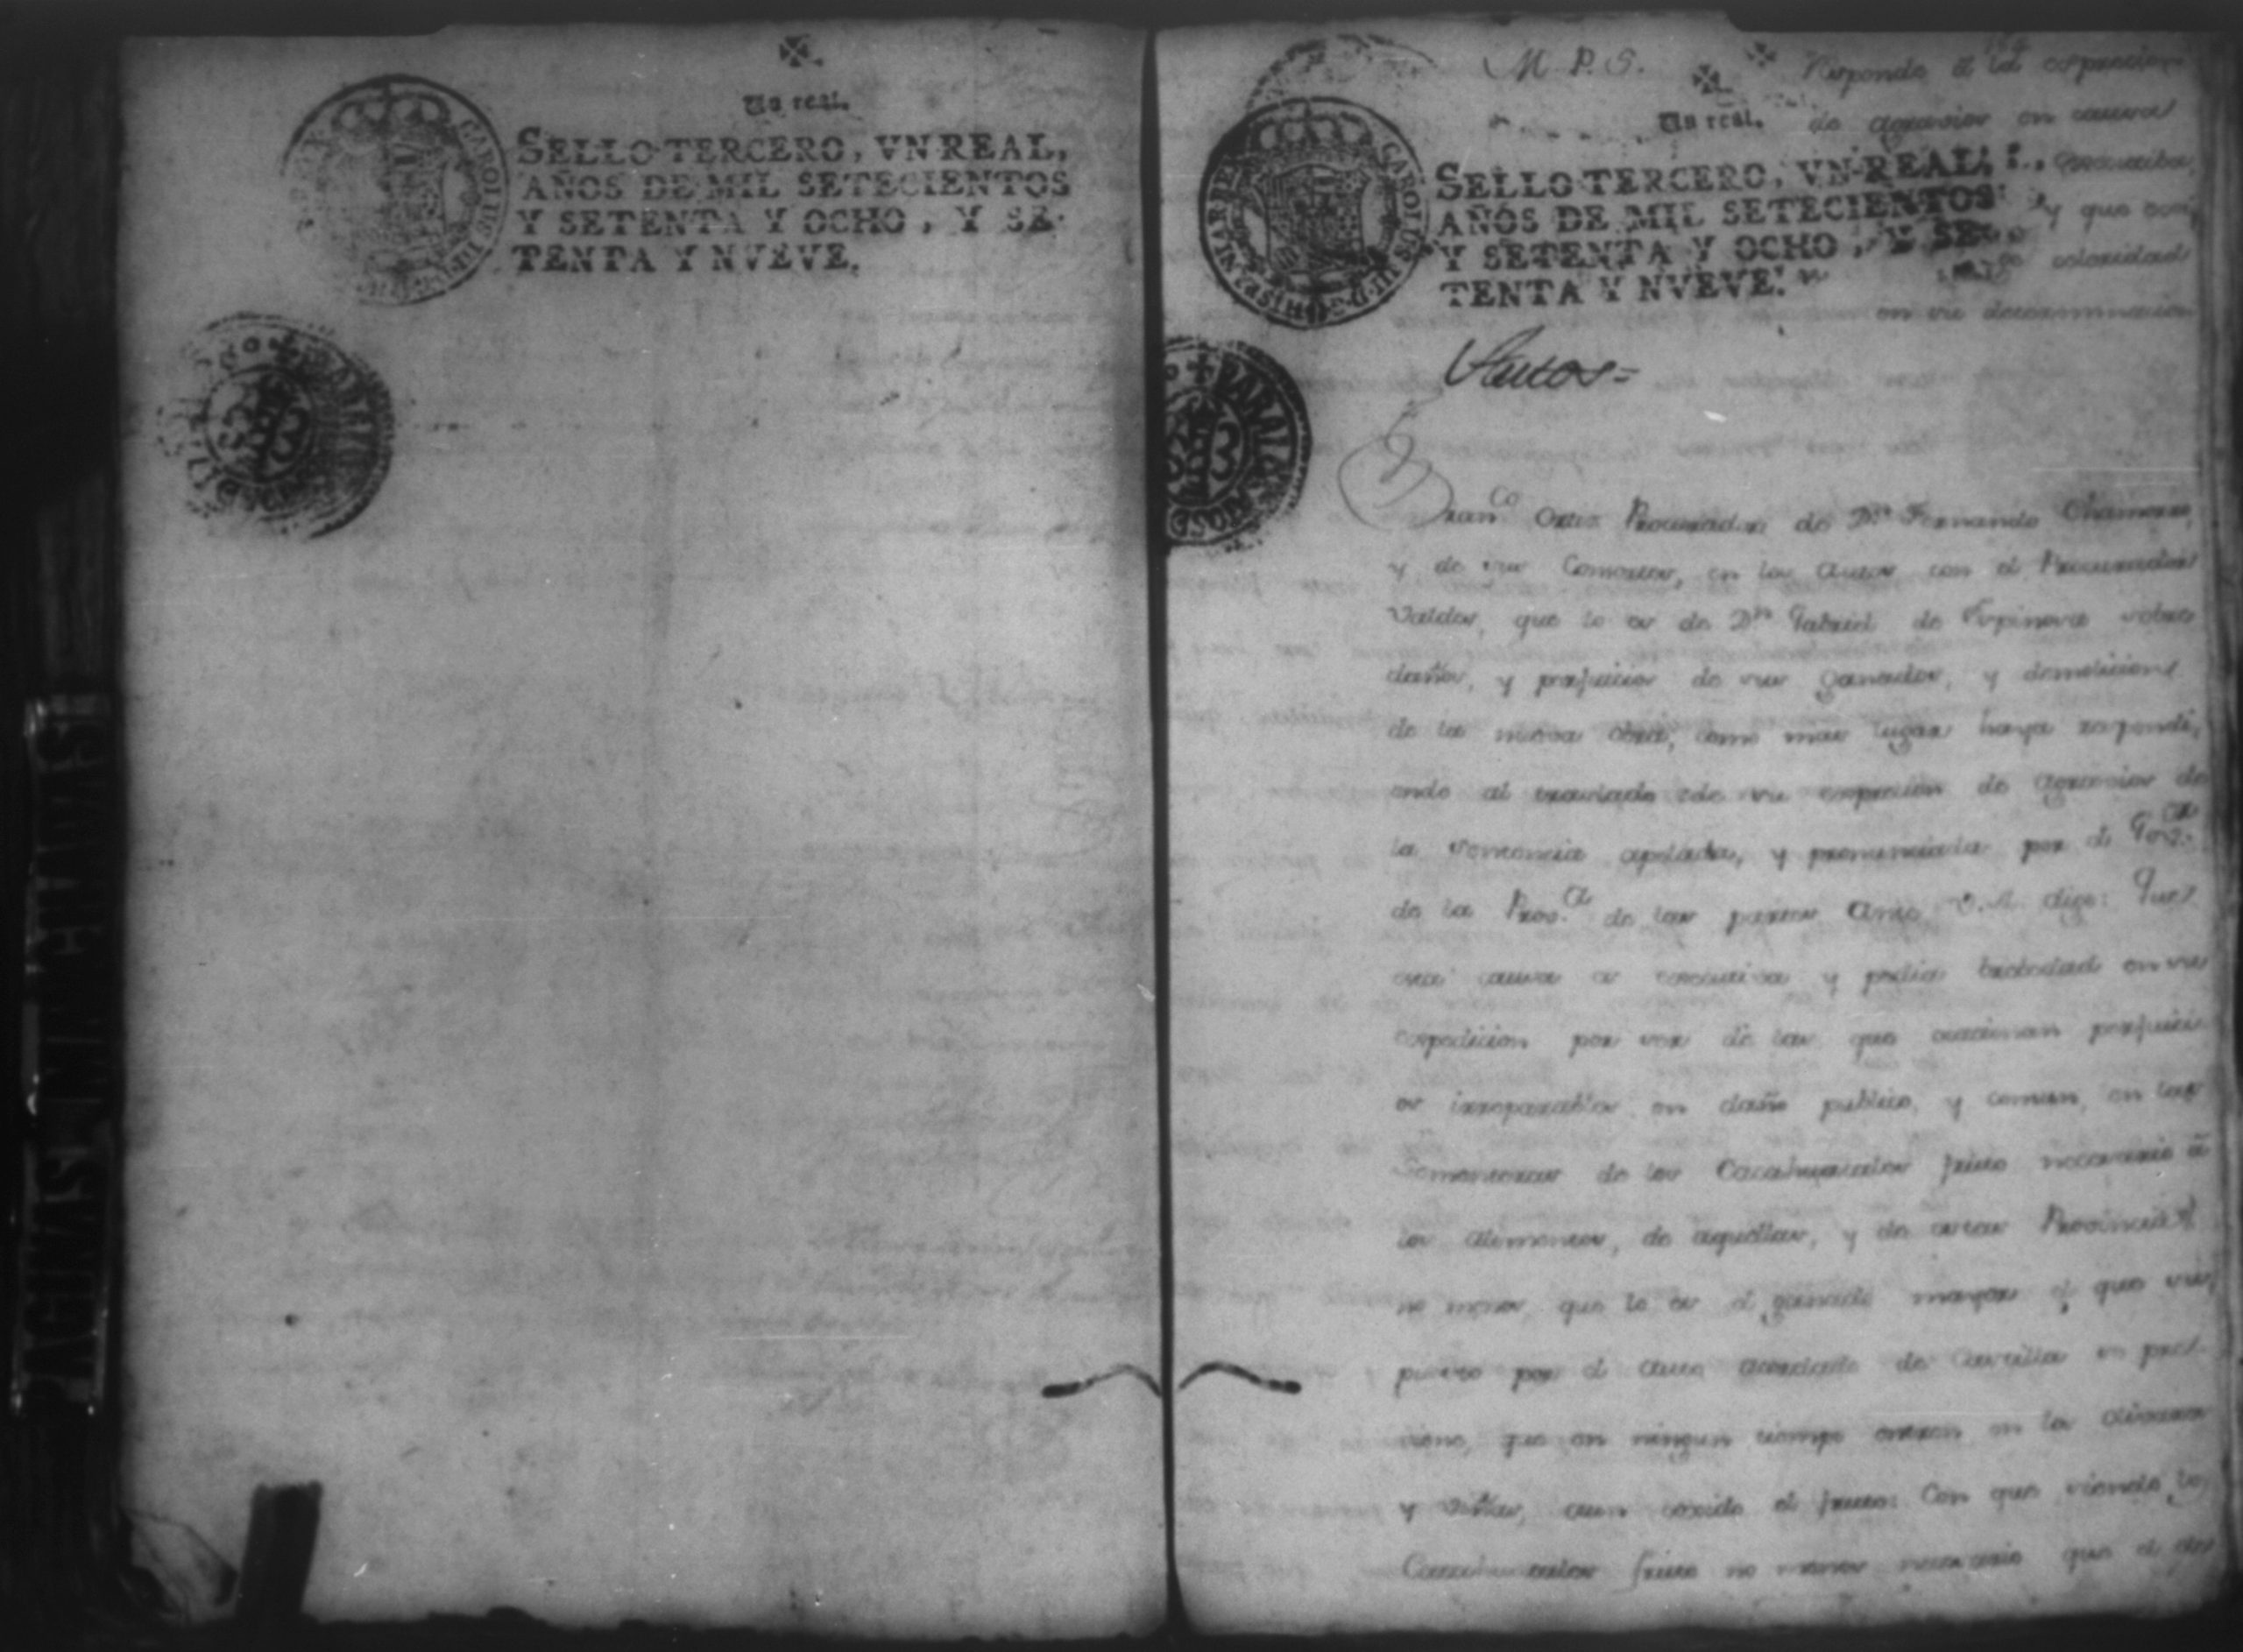 Un real.
SELLO TERCERO, VN REAL,
AÑOS DE MIL SETECIENTOS
Y SETENTA Y OCHO, Y SE-
TENTA Y NVEVE.
M. P. S.
Responde á la expresion
de agravios en causa
executiva,
y que
celeridad
en su determinacion
Un real.
SELLO TERCERO, VN REAL,
AÑOS DE MIL SETECIENTOS
Y SETENTA Y OCHO, Y SE-
TENTA Y NVEVE.
CAROLUS III D G HISPAN
PARA LA
Autos=
Franco Ortiz Procurador de Dn Fernando Chamorro,
y de sus Consortes, en los Autos con el Procurador
Valdes, que lo es de Dn Gabriel de Espinosa sobre
daños, y perjuicios de sus ganados, y demolicion
de la nueva obra, como mas lugar haya respondi,
endo al traslado de su expresion de agravios de
la Sentencia apelada, y pronunciada por el Govor
de la Prova de las partes Ante V.A. digo: Que
esta causa es executiva y pedia brebedad en su
expedicion por ser de las que ocacionan perjuici
os irreparables en daño publico, y comun, en las
Sementeras de los Cacahuatales fruto necesario á
los alimentos, de aquellas, y de estas Provincias
no menos que lo es el ganado mayor
puesto por el Auto acordado de Castilla
que en ningun tiempo entren en los olivares
y viñas, aun coxido el fruto: Con que siendo los
Cacahuatales fruto no menos necesario que el de
PAGINAS EN BLANCO